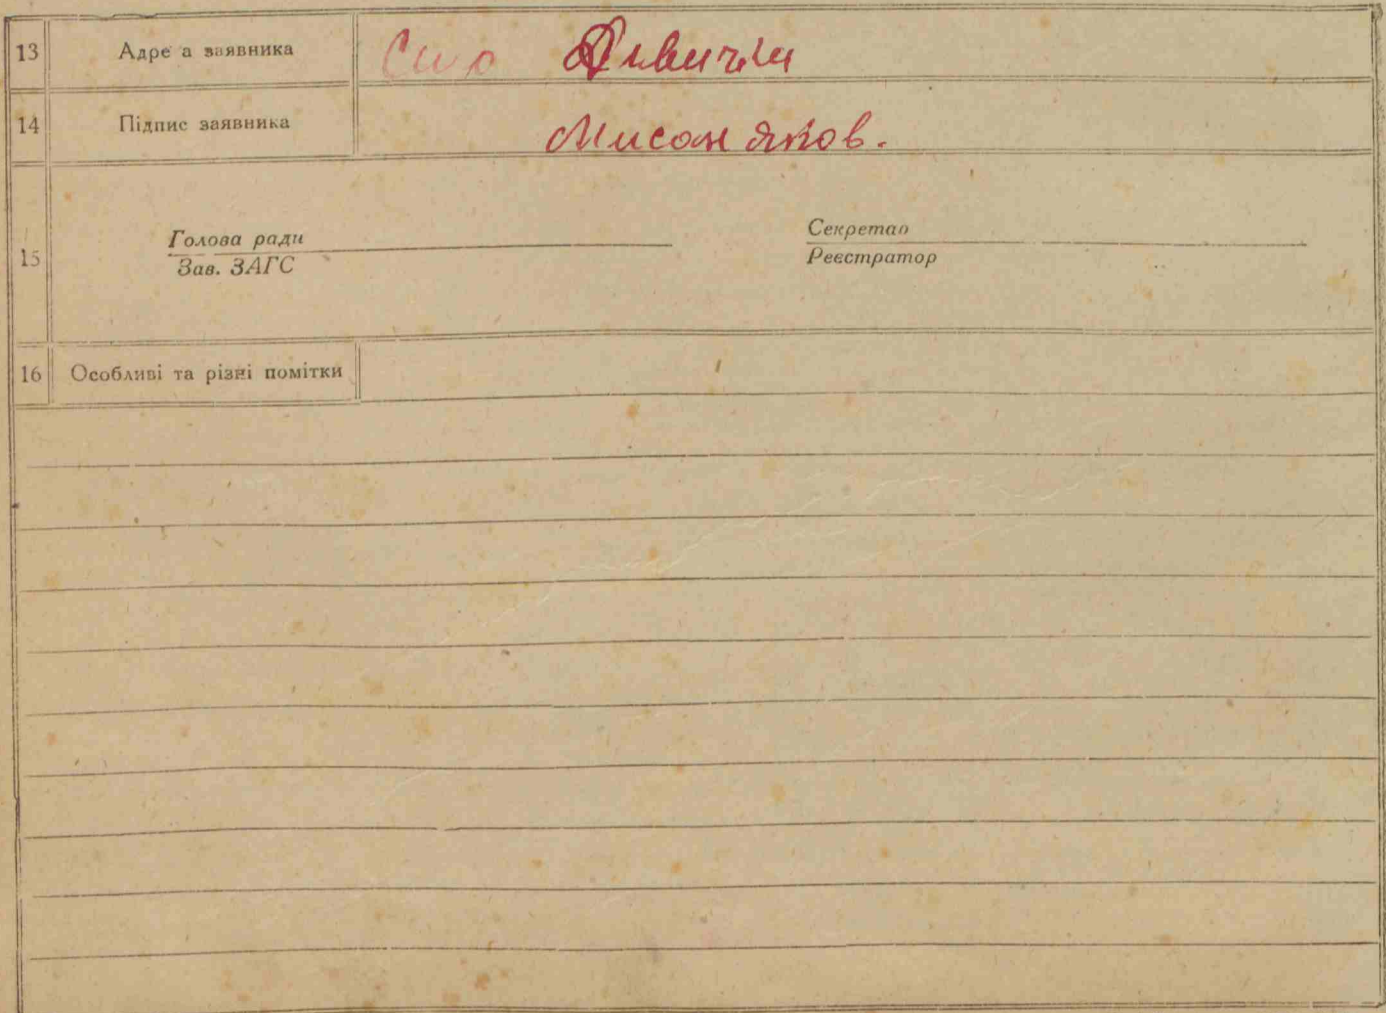 13 Адре а заявника Село Дівички
14 Підпис заявника Мисан Яков.
15 Голова ради Секретар
Зав. ЗАГС Реєстратор
16 Особливі та різні помітки